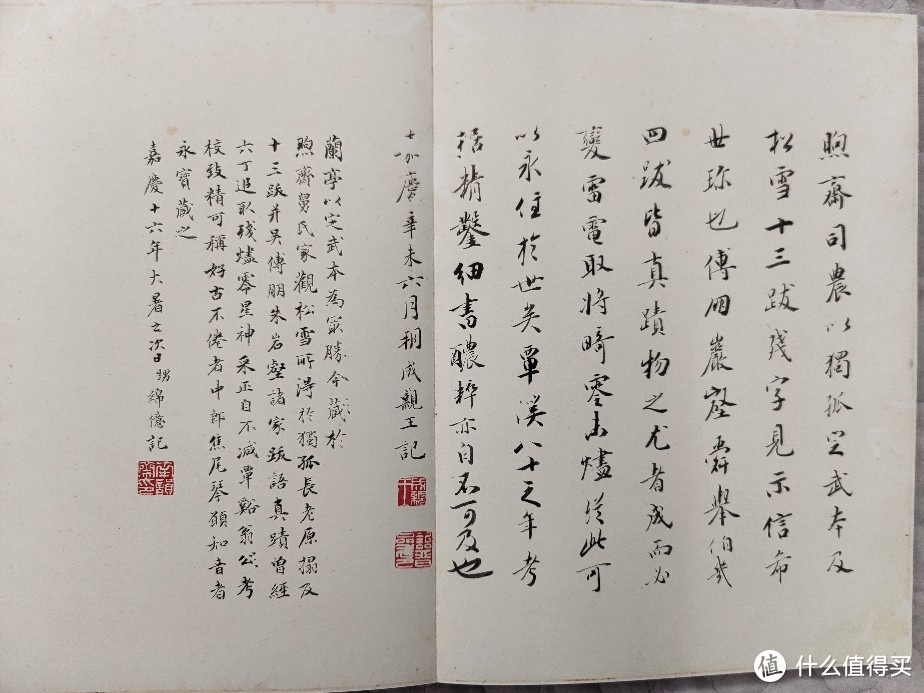 煦齋司農以獨孤定武本及
松雪十三跋殘字見示信希
世珍也傅朋巖壑霽舉伯幾
四跋皆真蹟物之尤者成而必
變雷電取將畸零未燼從此可
以永住於世矣覃溪八十之年考
據精鑿細書醲粹亦自不可及也
嘉慶辛未六月朔成親王記
蘭亭以定武本為最勝今藏於
煦齋舅氏家觀松雪所得於獨孤長老原搨及
十三跋并吳傅朋朱岩壑諸家跋語真蹟曾經
六丁追取殘燼零星神采正自不減覃谿翁公考
校致精可稱好古不倦者中郎焦尾琴願知音者
永寶藏之
嘉慶十六年大暑之次日甥綿億記
值 什么值得买